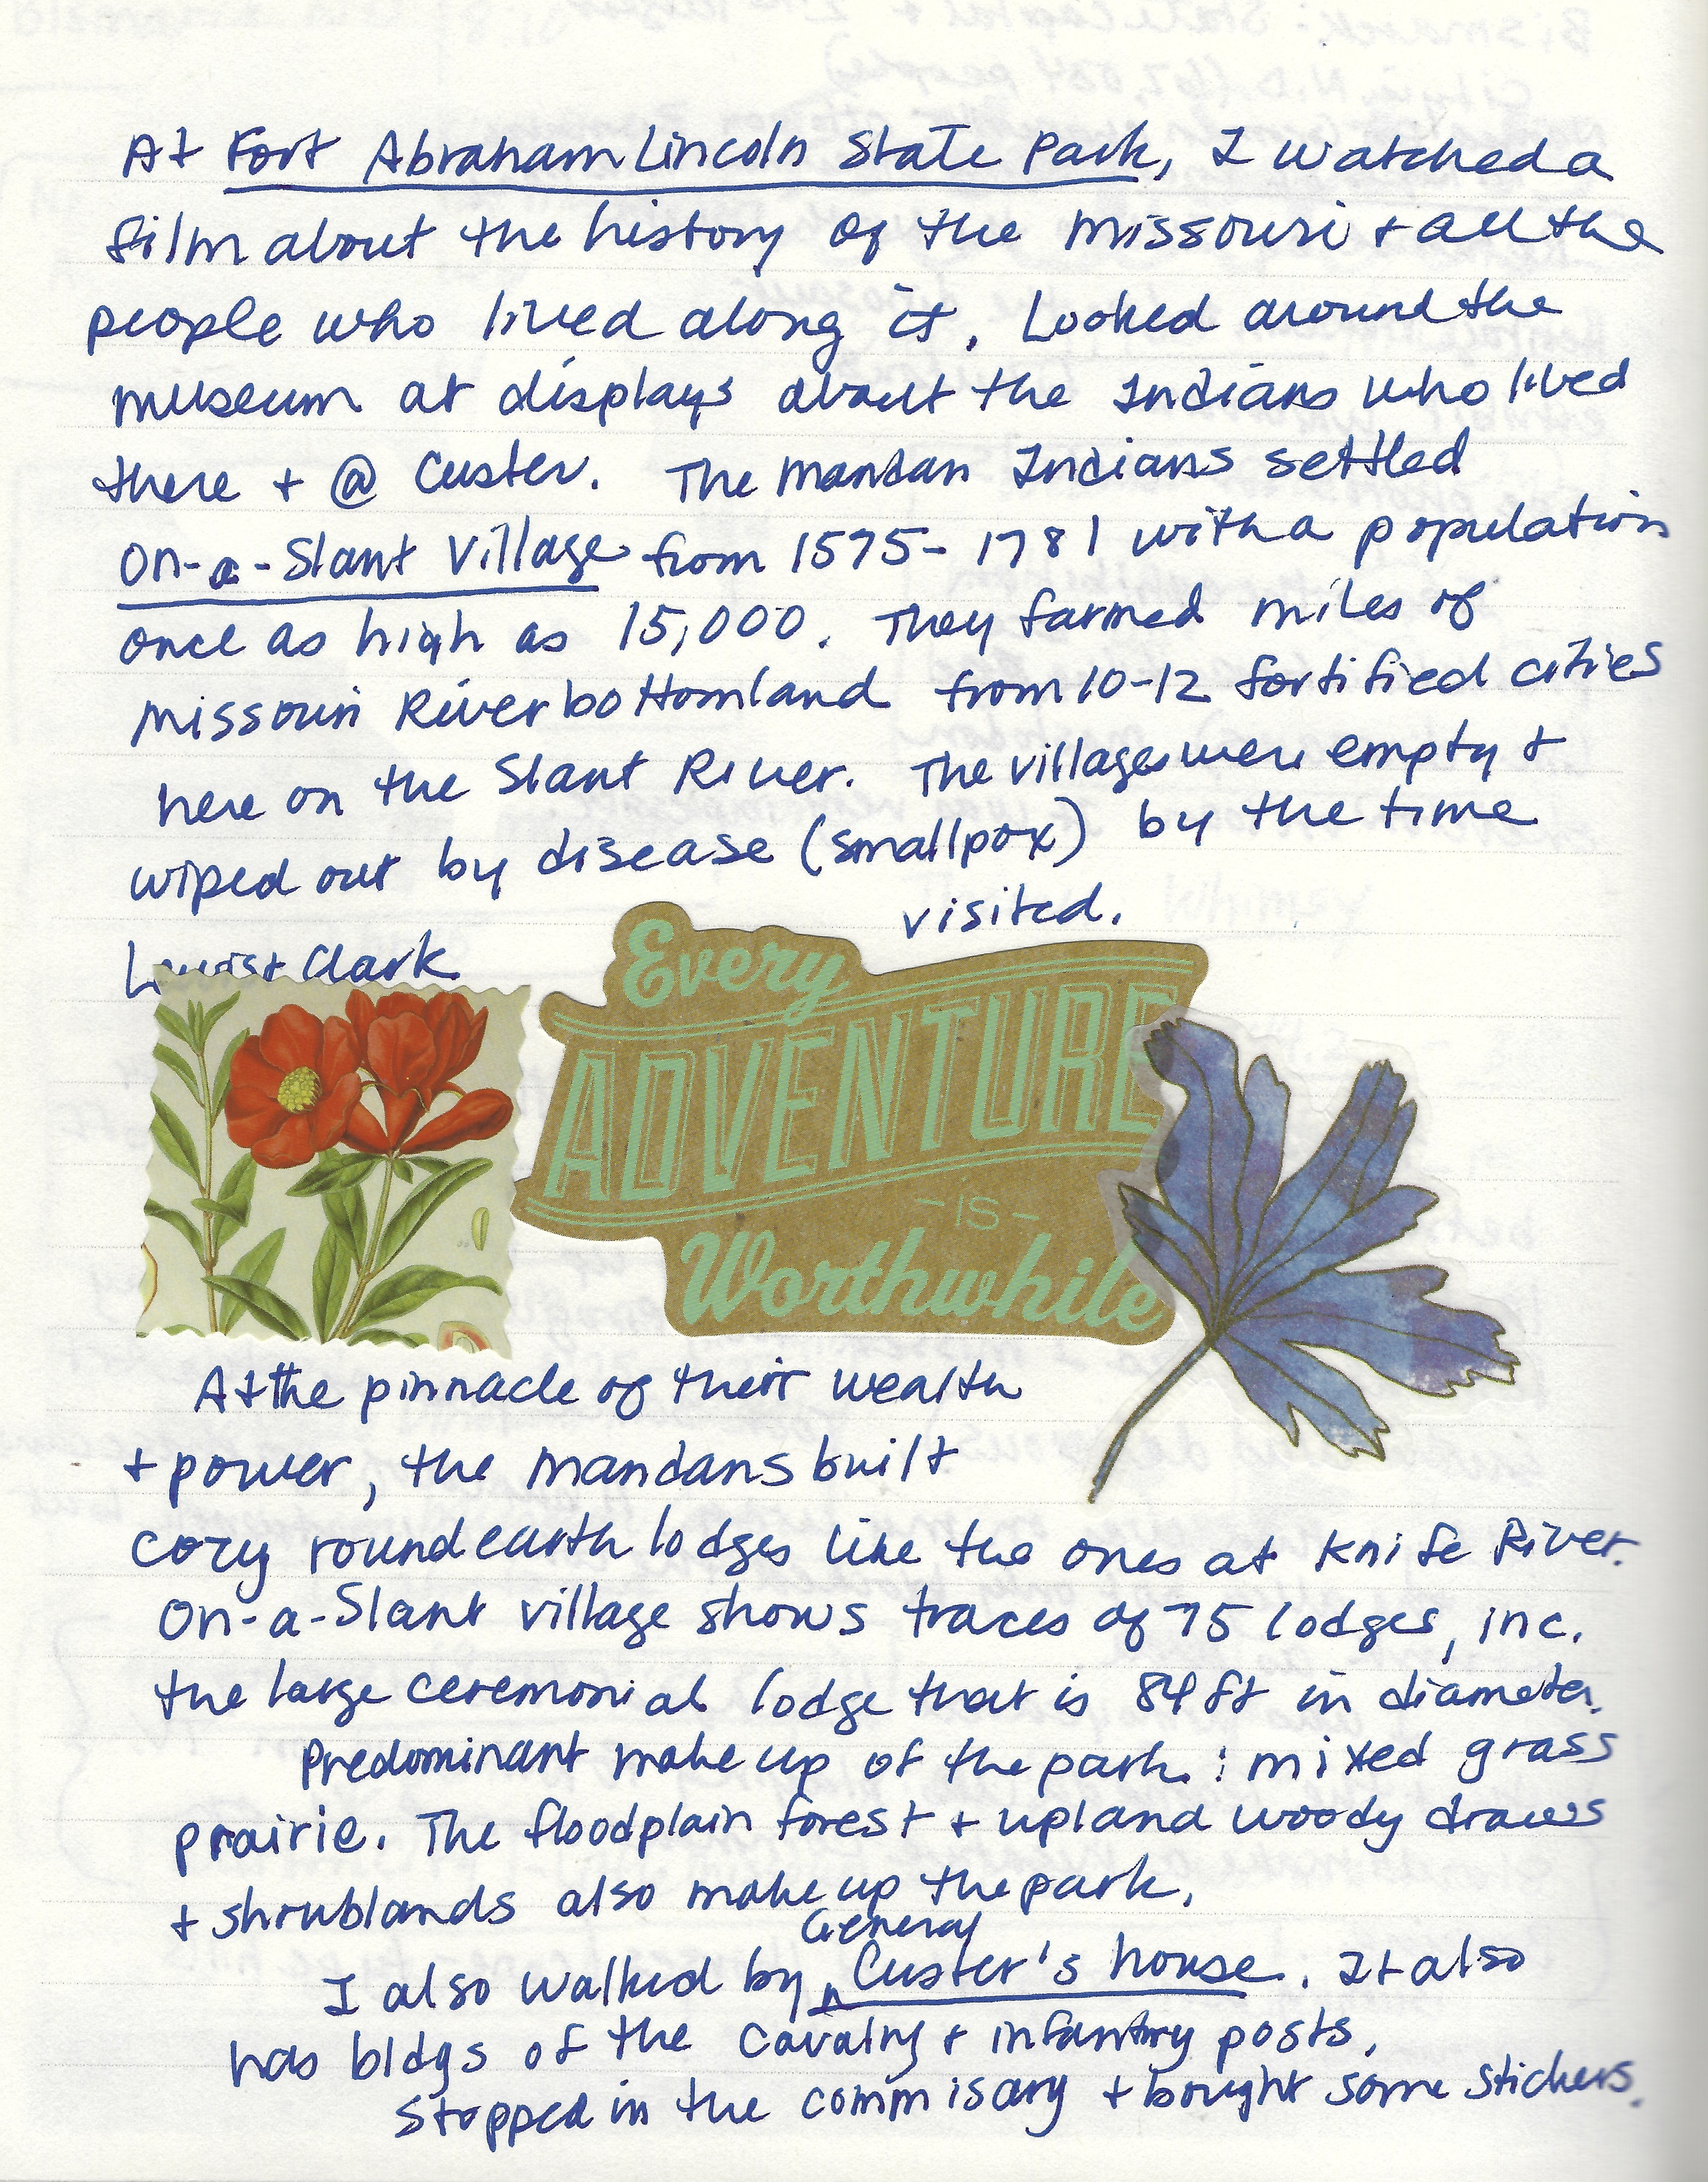 At Fort Abraham Lincoln State Park, I watched a
film about the history of the Missouri + all the
people who lived along it. Looked around the
museum at displays about the Indians who lived
there + @ Custer. The Mandan Indians settled
On-a-Slant Village from 1575-1781 with a population
once as high as 15,000. They farmed miles of
Missouri River bottomland from 10-12 fortified cities
here on the Slant River. The villages were empty +
wiped out by disease (smallpox) by the time
Lewis + Clark visited.
Every
ADVENTURE
-is-
Worthwhile
At the pinnacle of their wealth
+ power, the Mandans built
cozy round earth lodges like the ones at Knife River.
On-a-Slant village shows traces of 75 lodges, inc.
the large ceremonial lodge that is 84 ft in diameter.
Predominant make up of the park: mixed grass
prairie. The floodplain forest + upland woody draws
+ shrublands also make up the park.
I also walked by General Custer's house. It also
has bldgs of the cavalry + infantry posts.
Stopped in the commisary + bought some stickers.